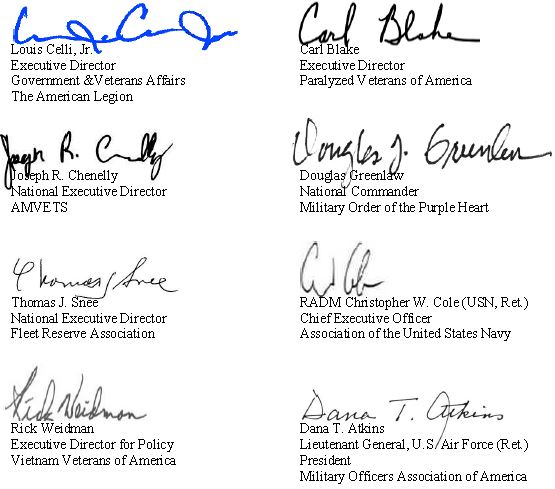 Louis Celli, Jr.
Executive Director
Government &Veterans Affairs
The American Legion
Carl Blake
Carl Blake
Executive Director
Paralyzed Veterans of America
Joseph R. Chenelly
Joseph R. Chenelly
National Executive Director
AMVETS
Douglas J. Greenlaw
Douglas Greenlaw
National Commander
Military Order of the Purple Heart
Thomas J Snee
Thomas J. Snee
National Executive Director
Fleet Reserve Association
RADM Christopher W. Cole (USN, Ret.)
Chief Executive Officer
Association of the United States Navy
Rick Weidman
Rick Weidman
Executive Director for Policy
Vietnam Veterans of America
Dana T. Atkins
Dana T. Atkins
Lieutenant General, U.S. Air Force (Ret.)
President
Military Officers Association of America